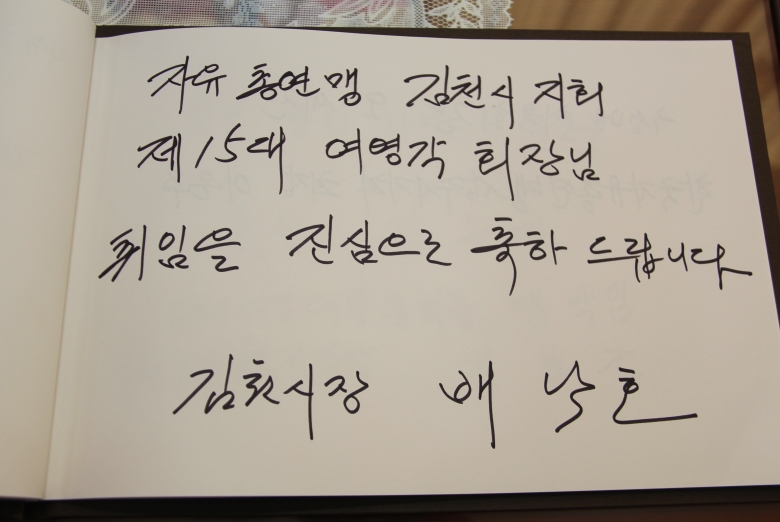 자유 총연맹 김천시 지회
제15대 여영각 회장님
취임을 진심으로 축하 드립니다
김천시장 배낙호